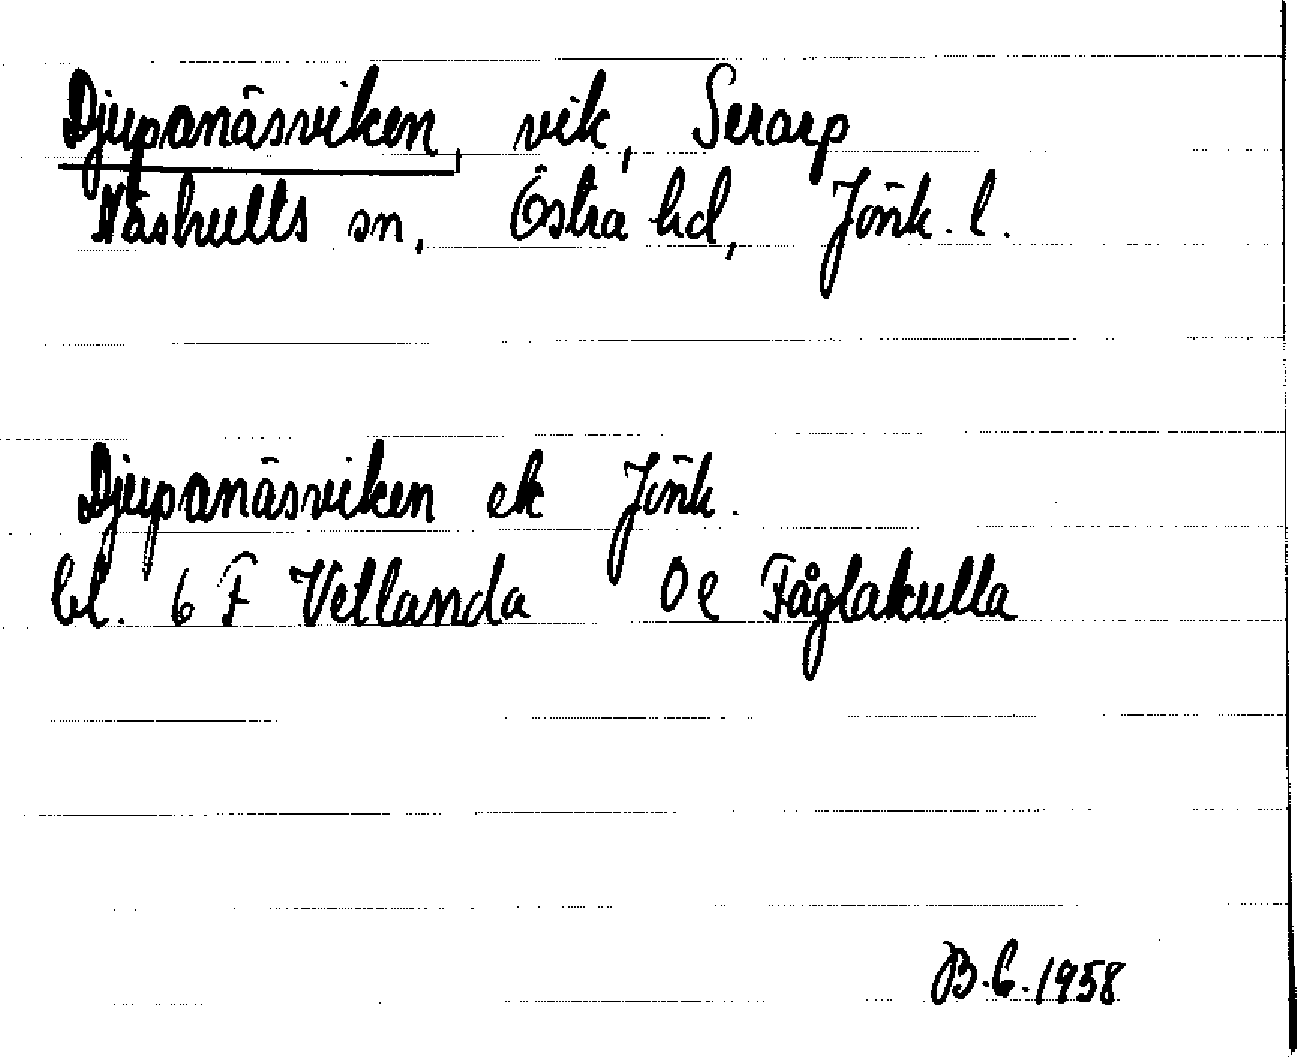 Djupanäsviken, vik, Serarp
Näshults sn, Östra hd, Jönk. l.
Djupanäsviken ek Jönk.
bl. 6 F Vetlanda 0e Fåglakulla
B.G. 1958